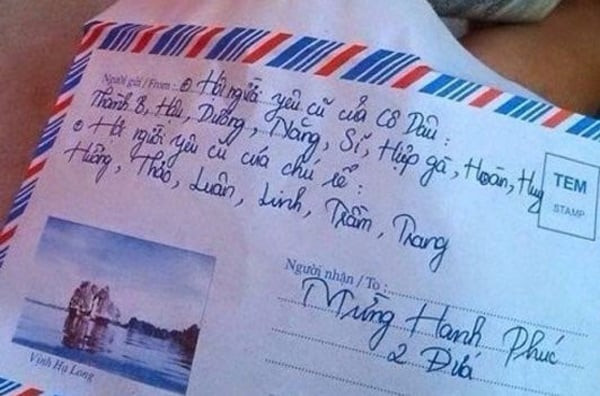 Người gửi / From :
⊙ Hội người yêu cũ của Cô Dâu :
Thành B, Hữu, Dưỡng, Năng, Sĩ, Hiệp gà, Hoàn, Huy
⊙ Hội người yêu cũ của chú rể :
Hường, Thảo, Luân, Linh, Trầm, Trang
TEM
STAMP
Người nhận / To :
Mừng Hạnh Phúc
2 Đứa
Vịnh Hạ Long